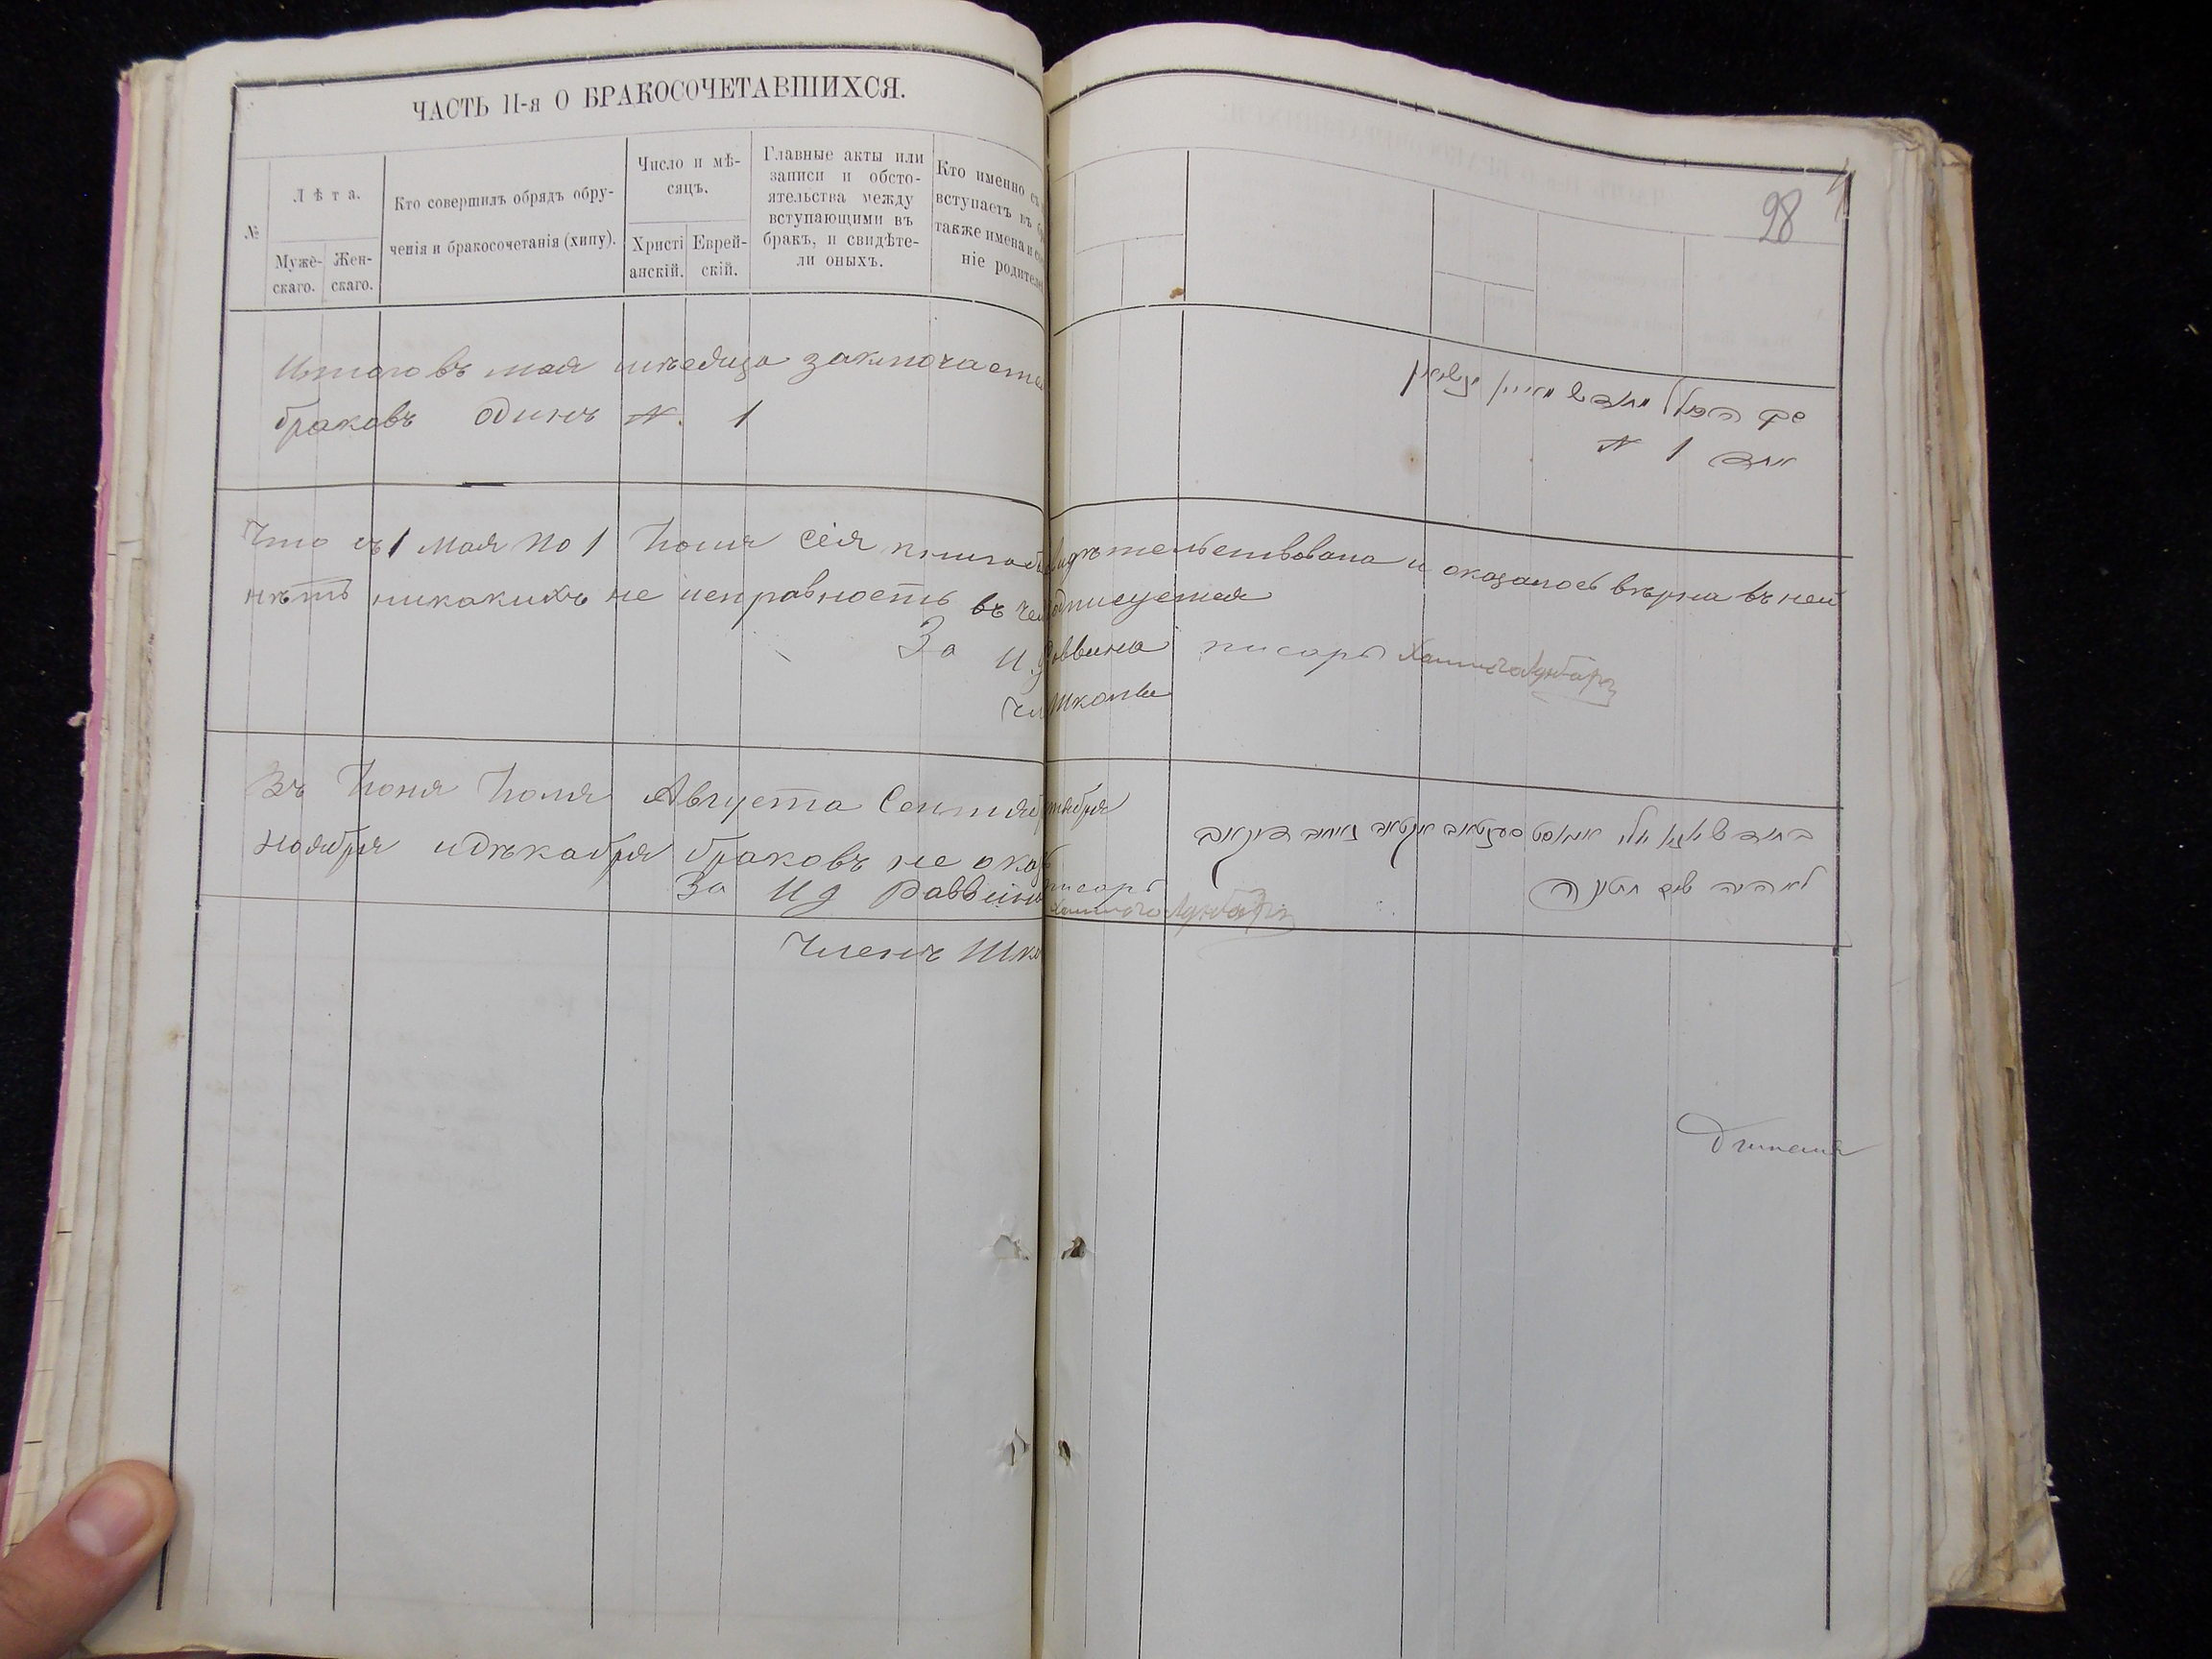 ЧАСТЬ II-я О БРАКОСОЧЕТАВШИХСЯ.
28
№
Лѣта.
Мужескаго.
Женскаго.
Кто совершилъ обрядъ обрученія и бракосочетанія (хипу).
Число и мѣсяцъ.
Христіанскій.
Еврейскій.
Главные акты или записи и обстоятельства между вступающими въ бракъ, и свидѣтели оныхъ.
Кто именно съ
вступаетъ въ
также имена и
ніе родителей
Итого въ мая мѣсяца заключается
браковъ одинъ № 1
סך הכולל חודש מאיי
אחד 1 №
Что съ 1 мая по 1 Іюня сія книга свидѣтельствована и оказалось вѣрна въ ней
нѣтъ никакихъ не исправность въ чемъ подписуется
За И. Раввина писарь
Чл Школы
Въ Іюня Іюля Августа Сентяб тября
ноября и дѣкабря браковъ не оказ
בחודש יוני יולי אווגוסט סענטאבר אקטאבר נאיאבר דיקאבר
לא היה שום חתונה
За И д Раввина писарь
Членъ Шко